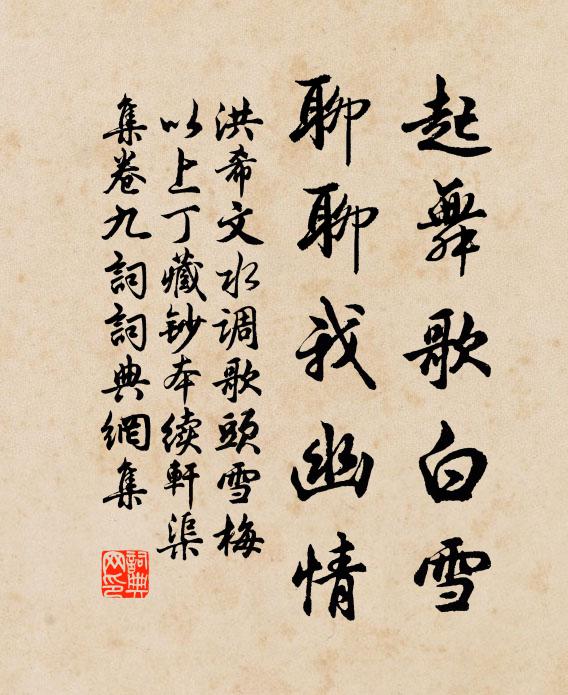 起舞歌白雪
聊聊我幽情
洪希文水调歌頭雪梅
以上丁藏鈔本续軒渠
集卷九詞詞典網集
詞典网印